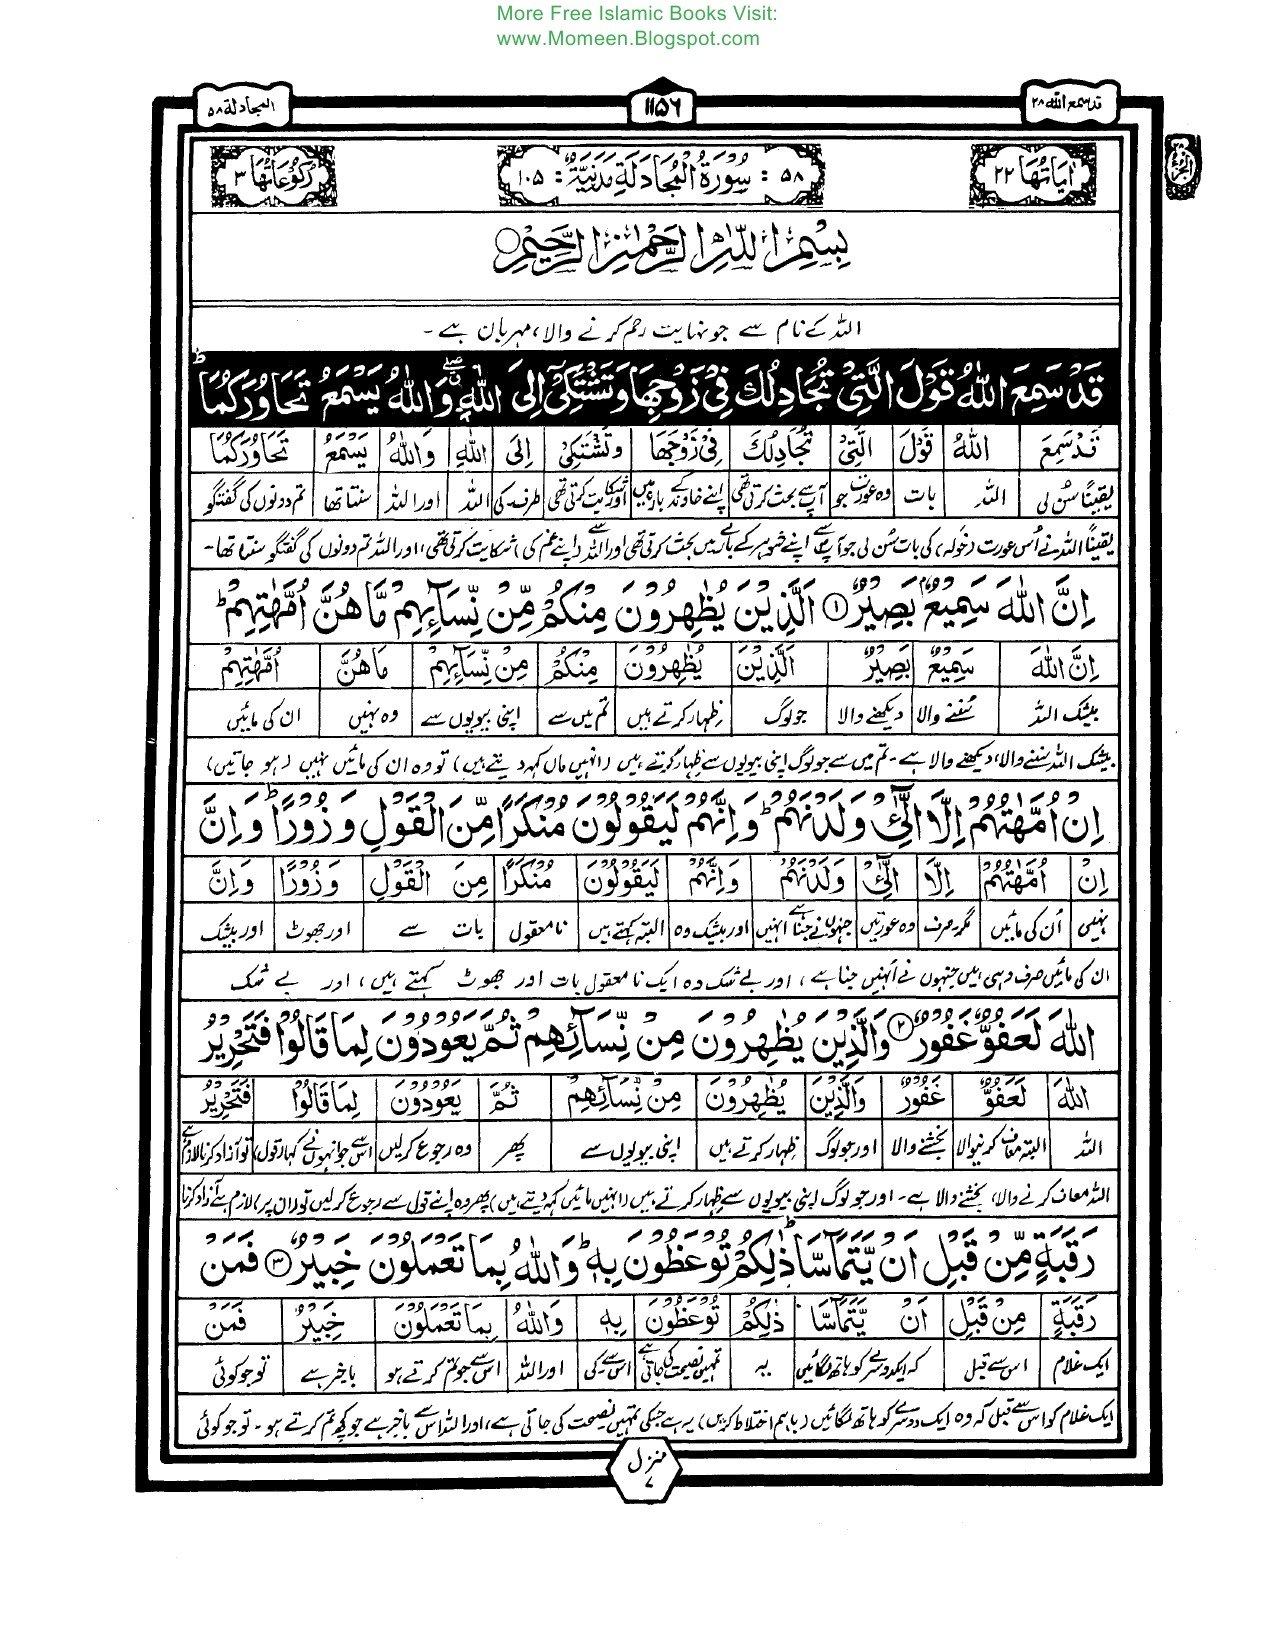 More Free Islamic Books Visit:
www.Momeen.Blogspot.com
قد سمع الله ۲۸
۱۱۵۶
المجادلة ۵۸
اٰیَاتُهَا ۲۲
۵۸ : سُوْرَةُ الْمُجَادَلَةِ مَدَنِيَّةٌ : ۱۰۵
رُكُوْعَاتُهَا ۳
بِسْمِ اللّٰهِ الرَّحْمٰنِ الرَّحِيْمِ
اللہ کے نام سے جو نہایت رحم کرنے والا، مہربان ہے۔
قَدْ سَمِعَ اللّٰهُ قَوْلَ الَّتِيْ تُجَادِلُكَ فِيْ زَوْجِهَا وَتَشْتَكِيْٓ اِلَى اللّٰهِ ۖ وَاللّٰهُ يَسْمَعُ تَحَاوُرَكُمَا ؕ
قَدْ سَمِعَ | اللّٰهُ | قَوْلَ | الَّتِيْ | تُجَادِلُكَ | فِيْ زَوْجِهَا | وَتَشْتَكِيْ | اِلَى | اللّٰهِ | وَاللّٰهُ | يَسْمَعُ | تَحَاوُرَكُمَا
یقیناً سُن لی | اللہ | بات | وہ عورت جو | آپ سے بحث کرتی تھی | اپنے خاوند کے بارے میں | اور شکایت کرتی تھی | طرف کی | اللہ | اور اللہ | سنتا تھا | تم دونوں کی گفتگو
یقیناً اللہ نے اُس عورت (خولہ) کی بات سُن لی جو آپ سے اپنے شوہر کے بارے میں بحث کرتی تھی اور اللہ سے (اپنے غم کی) شکایت کرتی تھی، اور اللہ تم دونوں کی گفتگو سنتا تھا۔
اِنَّ اللّٰهَ سَمِيْعٌۢ بَصِيْرٌ ۱ اَلَّذِيْنَ يُظٰهِرُوْنَ مِنْكُمْ مِّنْ نِّسَآئِهِمْ مَّا هُنَّ اُمَّهٰتِهِمْ ؕ
اِنَّ اللّٰهَ | سَمِيْعٌ | بَصِيْرٌ | اَلَّذِيْنَ | يُظٰهِرُوْنَ | مِنْكُمْ | مِنْ نِّسَآئِهِمْ | مَا هُنَّ | اُمَّهٰتِهِمْ
بیشک اللہ | سُننے والا | دیکھنے والا | جو لوگ | ظہار کرتے ہیں | تم میں سے | اپنی بیویوں سے | وہ نہیں | ان کی مائیں
بیشک اللہ سننے والا، دیکھنے والا ہے۔ تم میں سے جو لوگ اپنی بیویوں سے ظہار کرتے ہیں (انہیں ماں کہہ دیتے ہیں) تو وہ ان کی مائیں نہیں (ہو جاتیں)
اِنْ اُمَّهٰتُهُمْ اِلَّا الّٰٓـِٔيْ وَلَدْنَهُمْ ؕ وَاِنَّهُمْ لَيَقُوْلُوْنَ مُنْكَرًا مِّنَ الْقَوْلِ وَزُوْرًا ؕ وَاِنَّ
اِنْ | اُمَّهٰتُهُمْ | اِلَّا | الّٰٓـِٔيْ | وَلَدْنَهُمْ | وَاِنَّهُمْ | لَيَقُوْلُوْنَ | مُنْكَرًا | مِنَ الْقَوْلِ | وَزُوْرًا | وَاِنَّ
نہیں | اُن کی مائیں | مگر صرف | وہ عورتیں | جنہوں نے جنا ہے انہیں | اور بیشک وہ | البتہ کہتے ہیں | نامعقول | بات سے | اور جھوٹ | اور بیشک
ان کی مائیں صرف وہی ہیں جنہوں نے اُنہیں جنا ہے، اور بے شک وہ ایک نامعقول بات اور جھوٹ کہتے ہیں، اور بے شک
اللّٰهَ لَعَفُوٌّ غَفُوْرٌ ۲ وَالَّذِيْنَ يُظٰهِرُوْنَ مِنْ نِّسَآئِهِمْ ثُمَّ يَعُوْدُوْنَ لِمَا قَالُوْا فَتَحْرِيْرُ
اللّٰهَ | لَعَفُوٌّ | غَفُوْرٌ | وَالَّذِيْنَ | يُظٰهِرُوْنَ | مِنْ نِّسَآئِهِمْ | ثُمَّ | يَعُوْدُوْنَ | لِمَا قَالُوْا | فَتَحْرِيْرُ
اللہ | البتہ معاف کرنیوالا | بخشنے والا | اور جو لوگ | ظہار کرتے ہیں | اپنی بیویوں سے | پھر | وہ رجوع کرلیں | اس سے جو انہوں نے کہا (قول) | تو آزاد کرنا لازم ہے
اللہ معاف کرنے والا، بخشنے والا ہے۔ اور جو لوگ اپنی بیویوں سے ظہار کرتے ہیں (انہیں مائیں کہہ دیتے ہیں) پھر وہ اپنے قول سے رجوع کرلیں تو (ان پر) لازم ہے آزاد کرنا
رَقَبَةٍ مِّنْ قَبْلِ اَنْ يَّتَمَآسَّا ؕ ذٰلِكُمْ تُوْعَظُوْنَ بِهٖ ؕ وَاللّٰهُ بِمَا تَعْمَلُوْنَ خَبِيْرٌ ۳ فَمَنْ
رَقَبَةٍ | مِنْ قَبْلِ | اَنْ يَّتَمَآسَّا | ذٰلِكُمْ | تُوْعَظُوْنَ | بِهٖ | وَاللّٰهُ | بِمَا تَعْمَلُوْنَ | خَبِيْرٌ | فَمَنْ
ایک غلام | اس سے قبل | کہ ایک دوسرے کو ہاتھ لگائیں | یہ | تمہیں نصیحت کی جاتی ہے | اس سے کی | اور اللہ | اس سے جو تم کرتے ہو | باخبر ہے | تو جو کوئی
ایک غلام کو اس سے قبل کہ وہ ایک دوسرے کو ہاتھ لگائیں (باہم اختلاط کریں) یہ ہے جسکی تمہیں نصیحت کی جاتی ہے، اور اللہ اس سے باخبر ہے جو کچھ تم کرتے ہو۔ تو جو کوئی
منزل ۷